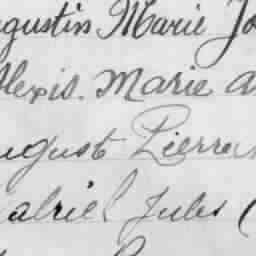 gustin Marie Jo
lexis. Marie a
ugust Pierre
abriel Jules (